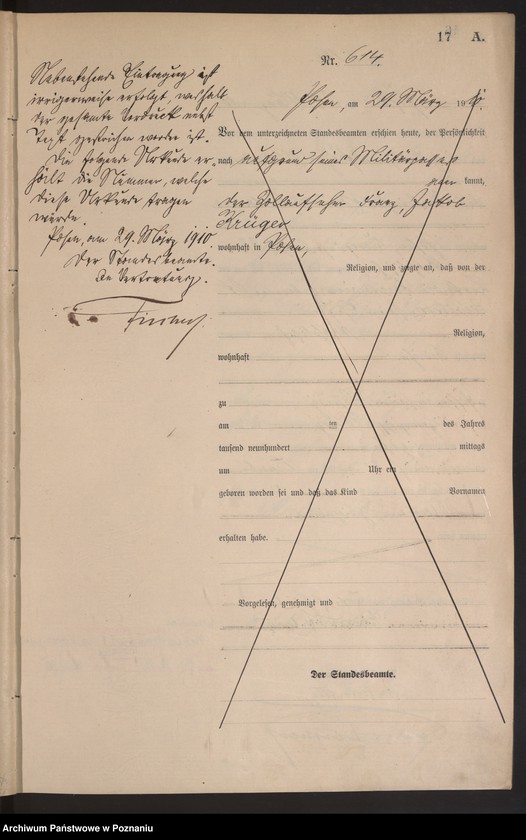 17 A.
Nr. 614.
Nebenstehende Eintragung ist
irrigerweise erfolgt, weshalb
der gesamte Vordruck nebst
Text gestrichen worden ist.
Die folgende Urkunde er-
hält die Nummer, welche
diese Urkunde tragen
würde.
Posen, am 29. März 1910.
Der Standesbeamte.
In Vertretung.
Posen, am 29. März 1910.
Vor dem unterzeichneten Standesbeamten erschien heute, der Persönlichkeit
nach auf Grund seines Militärpasses
kannt,
der Zollaufseher Franz, Jakob
Krüger
wohnhaft in Posen,
Religion, und zeigte an, daß von der
Religion,
wohnhaft
zu
am ten des Jahres
tausend neunhundert mittags
um Uhr ein
geboren worden sei und daß das Kind Vornamen
erhalten habe.
Vorgelesen, genehmigt und
Der Standesbeamte.
Archiwum Państwowe w Poznaniu